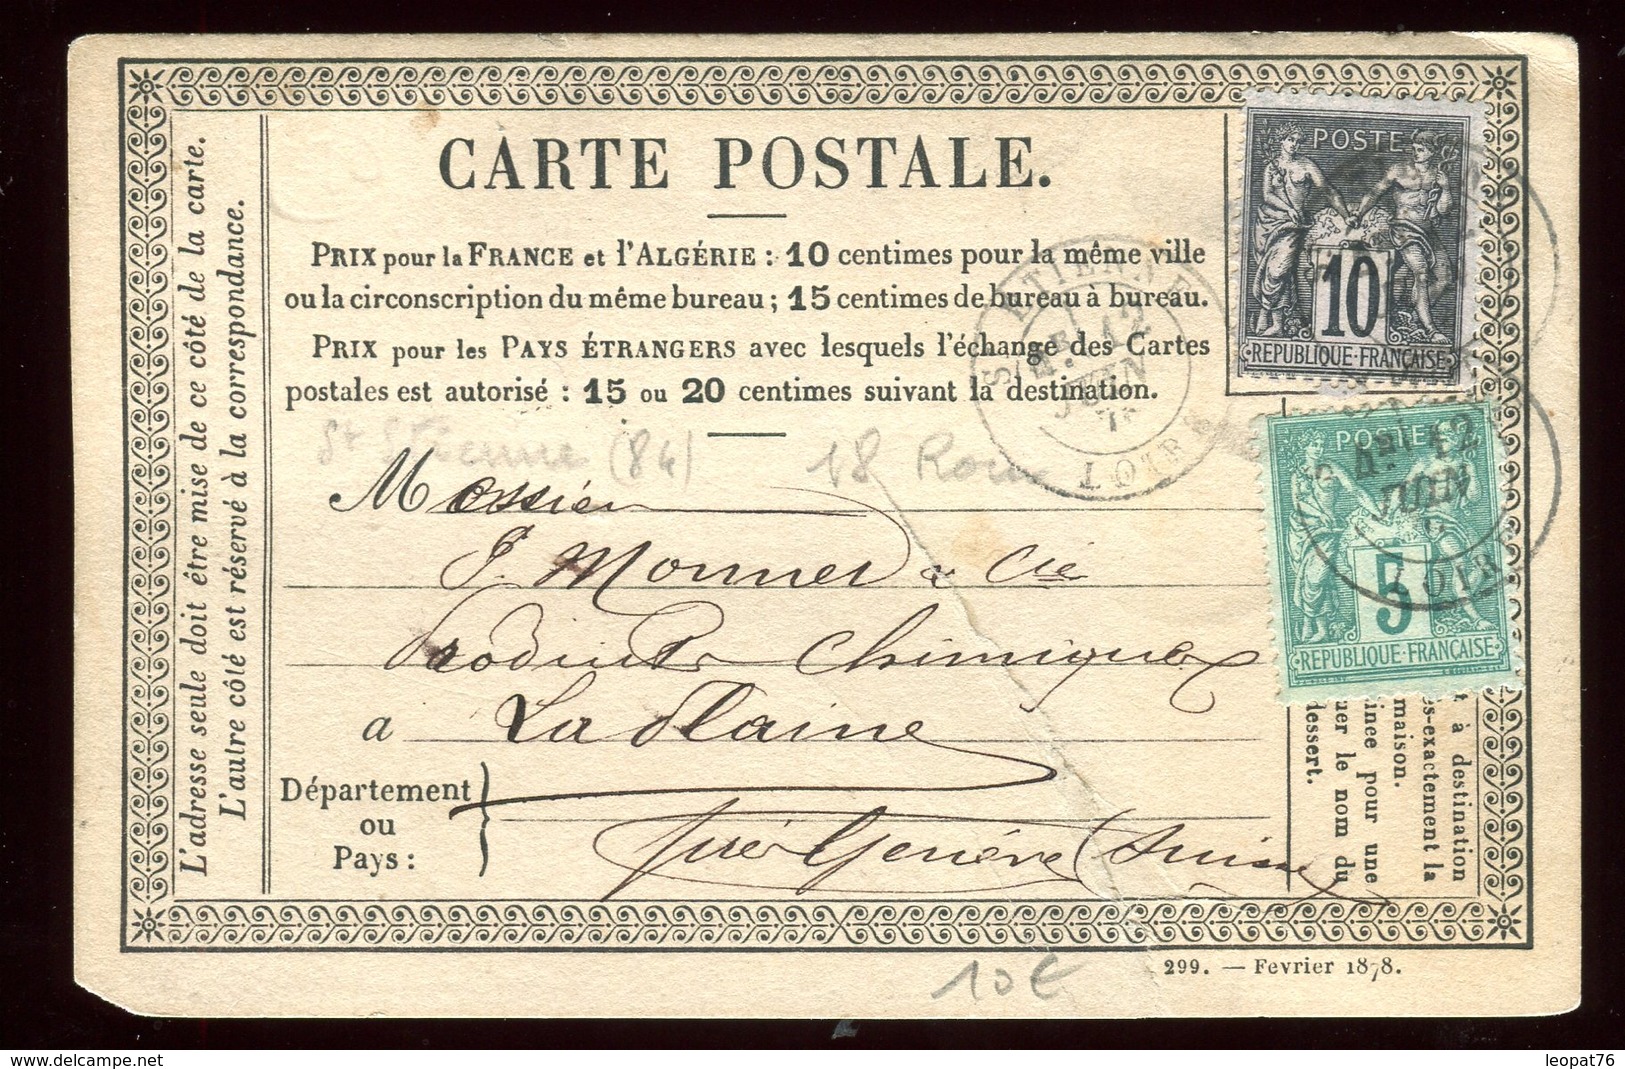 CARTE POSTALE.
PRIX pour la FRANCE et l'ALGÉRIE : 10 centimes pour la même ville
ou la circonscription du même bureau ; 15 centimes de bureau à bureau.
PRIX pour les PAYS ÉTRANGERS avec lesquels l'échange des Cartes
postales est autorisé : 15 ou 20 centimes suivant la destination.
L'adresse seule doit être mise de ce côté de la carte.
L'autre côté est réservé à la correspondance.
POSTE
10
REPUBLIQUE·FRANÇAISE
ETIENNE
JUIN
LOIRE
POSTE
12
JUIN
5
LOIRE
REPUBLIQUE·FRANÇAISE
St Etienne (84) 18
Messieu
Monnet & Cie
Produits Chimiques
a La Plaine
Département
ou
Pays :
près Genève (Suisse)
t à destination
s-exactement la
maison.
inée pour une
uer le nom du
dessert.
299. — Fevrier 1878.
10€
leopat76